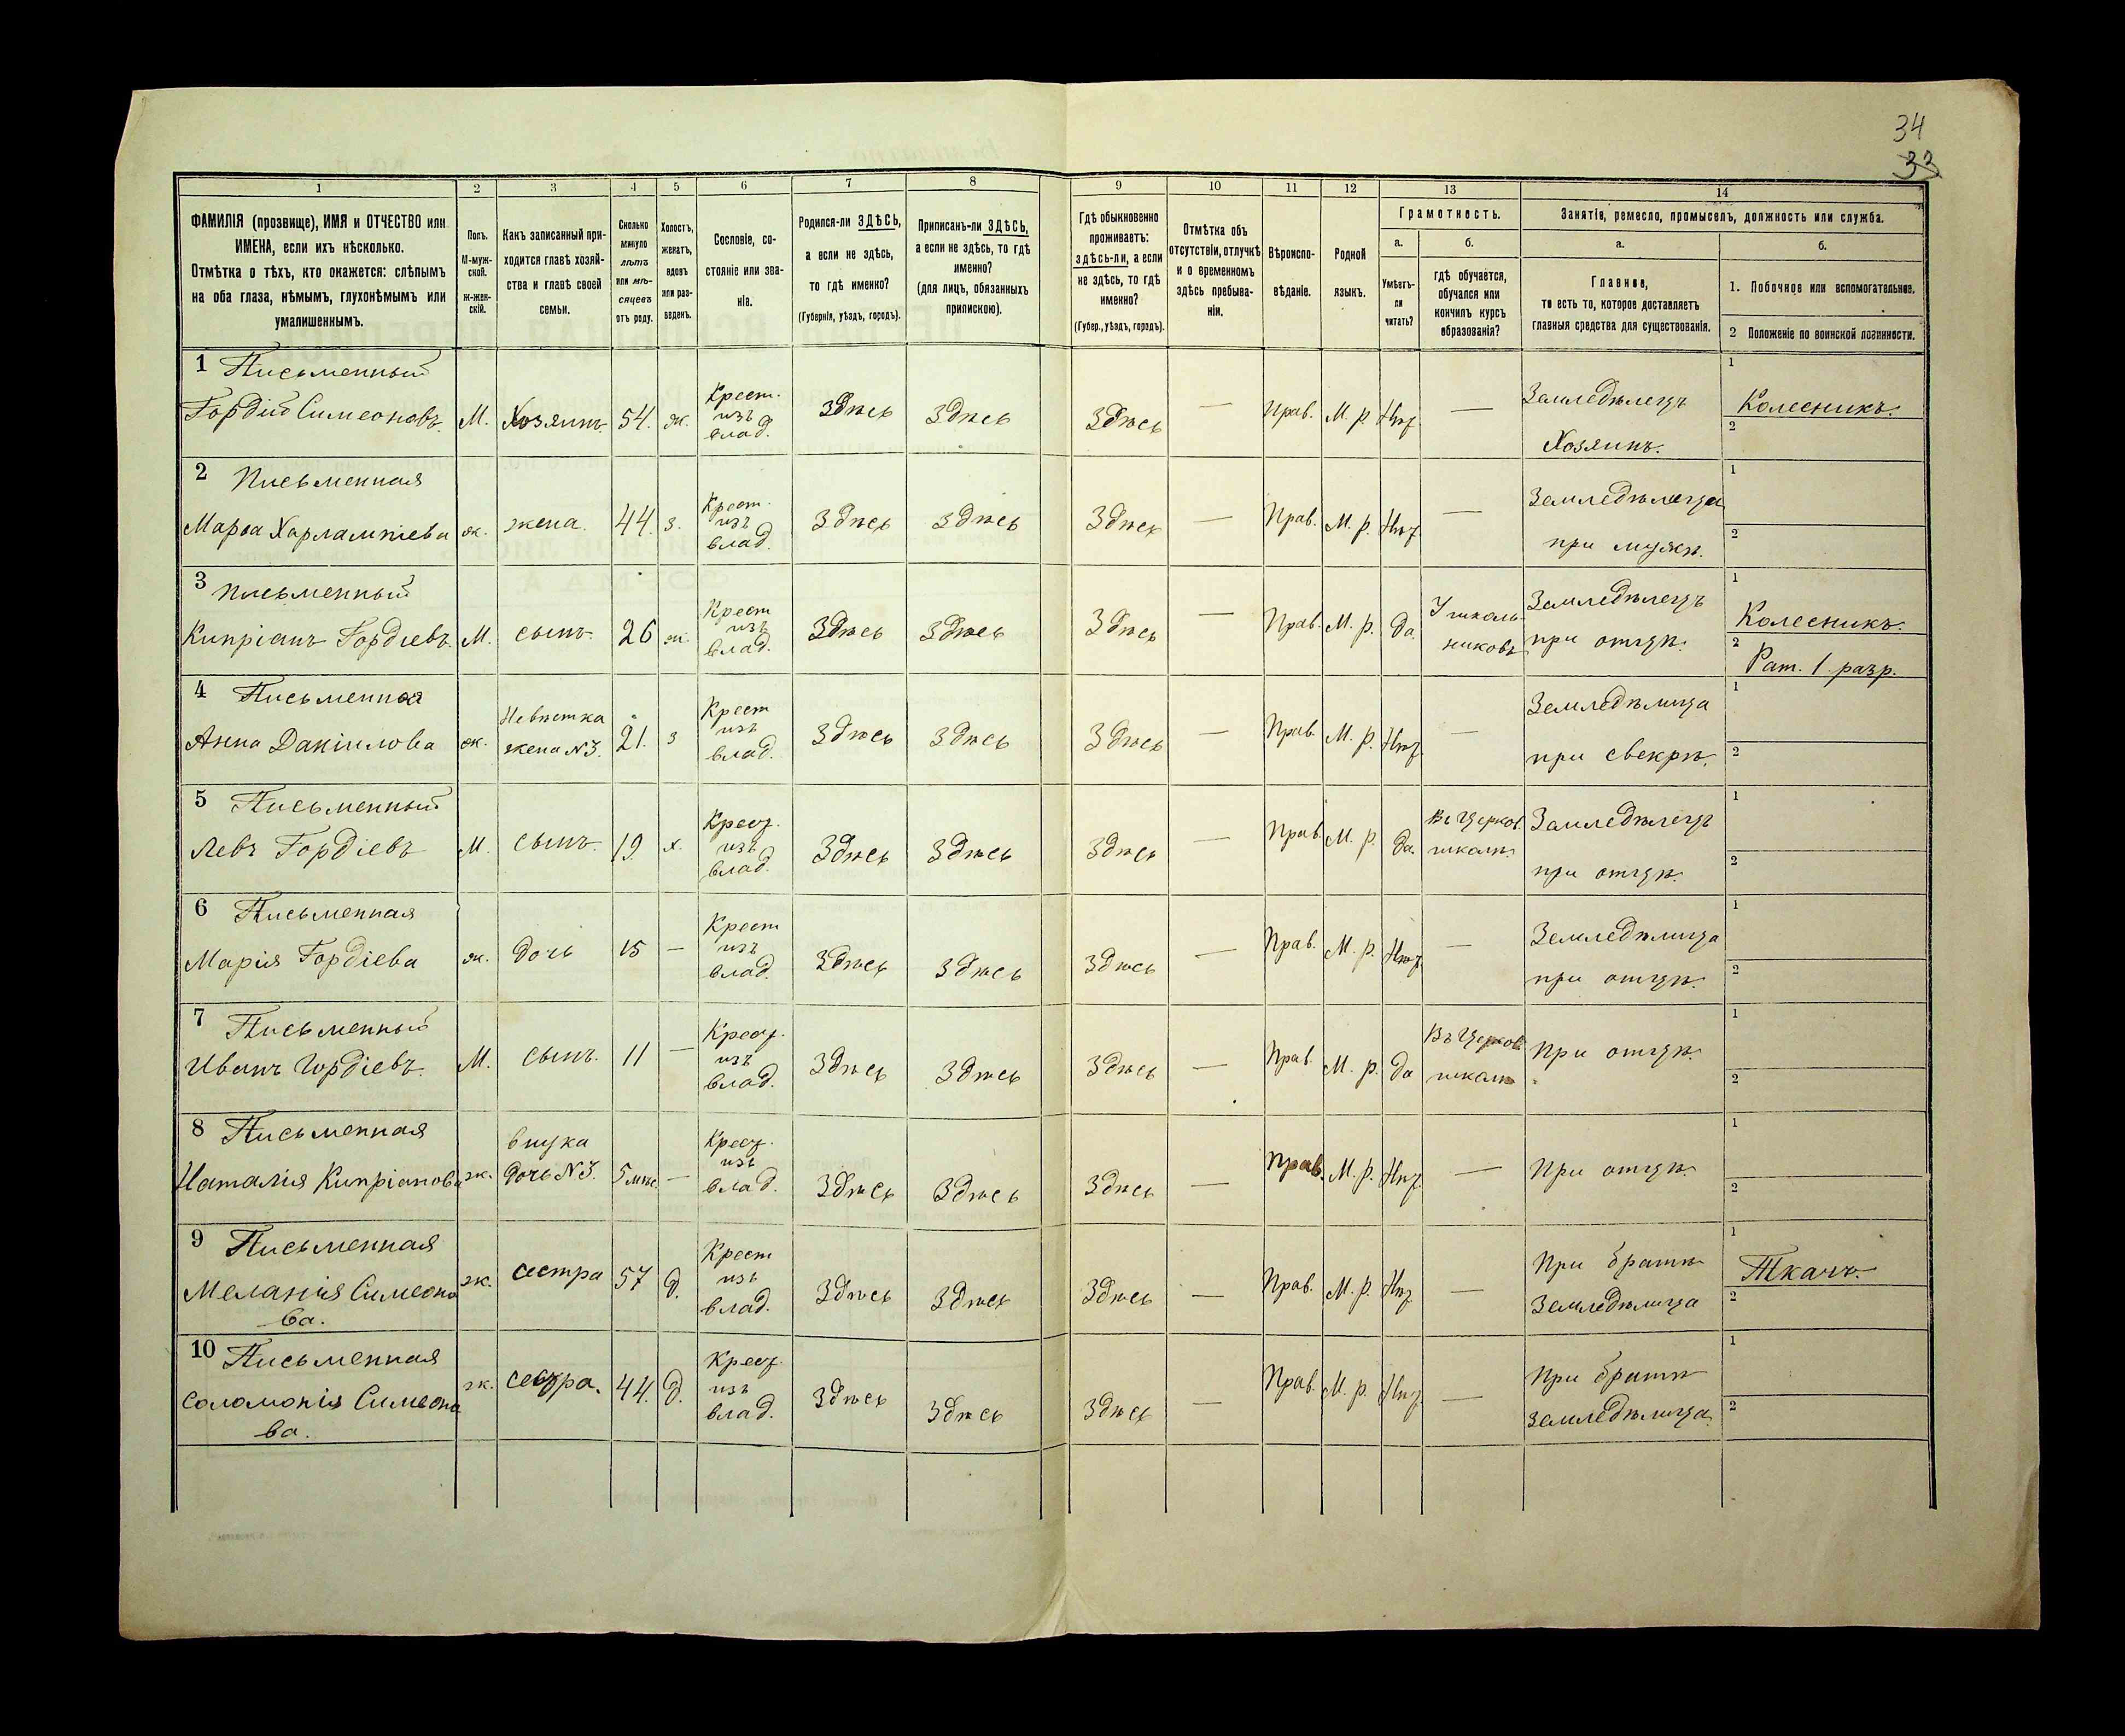 34
33
1 2 3 4 5 6 7 8 9 10 11 12 13 14
ФАМИЛІЯ (прозвище), ИМЯ и ОТЧЕСТВО или
ИМЕНА, если ихъ нѣсколько.
Отмѣтка о тѣхъ, кто окажется: слѣпымъ
на оба глаза, нѣмымъ, глухонѣмымъ или
умалишеннымъ.
Полъ.
М-муж-
ской.
ж-жен-
скій.
Какъ записанный при-
ходится главѣ хозяй-
ства и главѣ своей
семьи.
Сколько
минуло
лѣтъ
или мѣ-
сяцевъ
отъ роду.
Холостъ,
женатъ,
вдовъ
или раз-
веденъ.
Сословіе, со-
стояніе или зва-
ніе.
Родился-ли ЗДѢСЬ,
а если не здѣсь,
то гдѣ именно?
(Губернія, уѣздъ, городъ).
Приписанъ-ли ЗДѢСЬ,
а если не здѣсь, то гдѣ
именно?
(для лицъ, обязанныхъ
припискою).
Гдѣ обыкновенно
проживаетъ:
здѣсь-ли, а если
не здѣсь, то гдѣ
именно?
(Губер., уѣздъ, городъ).
Отмѣтка объ
отсутствіи, отлучкѣ
и о временномъ
здѣсь пребыва-
ніи.
Вѣроиспо-
вѣданіе.
Родной
языкъ.
Грамотность.
а.
Умѣетъ-
ли
читать?
б.
гдѣ обучается,
обучался или
кончилъ курсъ
образованія?
Занятіе, ремесло, промыселъ, должность или служба.
а.
Главное,
то есть то, которое доставляетъ
главныя средства для существованія.
б.
1. Побочное или вспомогательное.
2 Положеніе по воинской повинности.
1 Письменный
Гордій Симеоновъ. М. Хозяинъ. 54. ж.
Крест.
изъ
влад.
Здѣсь Здѣсь Здѣсь — Прав. М. р. Нѣт. —
Земледѣлецъ
Хозяинъ.
1
Колесникъ.
2
2 Письменная
Марѳа Харлампіева ж. жена. 44. з.
Крест.
изъ
влад.
Здѣсь Здѣсь Здѣсь — Прав. М. р. Нѣт. —
Земледѣлеца
при мужѣ.
1
2
3 Письменный
Кипріанъ Гордіевъ. М. сынъ. 26 ж.
Крест
изъ
влад.
Здѣсь Здѣсь Здѣсь — Прав. М. р. да.
У школь-
никовъ
Земледѣлецъ
при отцѣ.
1
Колесникъ.
2
Рат. 1 разр.
4 Письменная
Анна Даніилова ж.
Невѣстка
жена №3. 21. з
Крест
изъ
влад.
Здѣсь Здѣсь Здѣсь — Прав. М. р. Нѣт. —
Земледѣлица
при свекрѣ.
1
2
5 Письменный
Левъ Гордіевъ М. сынъ. 19. х.
Крест.
изъ
влад.
Здѣсь Здѣсь Здѣсь — Прав. М. р. да.
Въ Церков.
школѣ.
Земледѣлецъ
при отцѣ.
1
2
6 Письменная
Марія Гордіева ж. дочь 15 —
Крест
изъ
влад.
Здѣсь Здѣсь Здѣсь — Прав. М. р. Нѣт. —
Земледѣлица
при отцѣ.
1
2
7 Письменный
Иванъ Гордіевъ. М. сынъ. 11 —
Крест.
изъ
влад.
Здѣсь Здѣсь Здѣсь — Прав. М. р. да
Въ Церков.
школѣ
При отцѣ.
1
2
8 Письменная
Наталія Кипріанова ж.
внука
дочь №3. 5 мѣс. —
Крест.
изъ
влад.
Здѣсь Здѣсь Здѣсь — Прав. М. р. Нѣт. —
При отцѣ.
1
2
9 Письменная
Меланія Симеоно
ва. ж. сестра 57 д.
Крест
изъ
влад.
Здѣсь Здѣсь Здѣсь — Прав. М. р. Нѣт. —
При братѣ
Земледѣлица
1
Ткачъ.
2
10 Письменная
Соломонія Симеоно
ва. ж. сестра. 44. д.
Крест.
изъ
влад.
Здѣсь Здѣсь Здѣсь — Прав. М. р. Нѣт. —
При братѣ
Земледѣлица
1
2